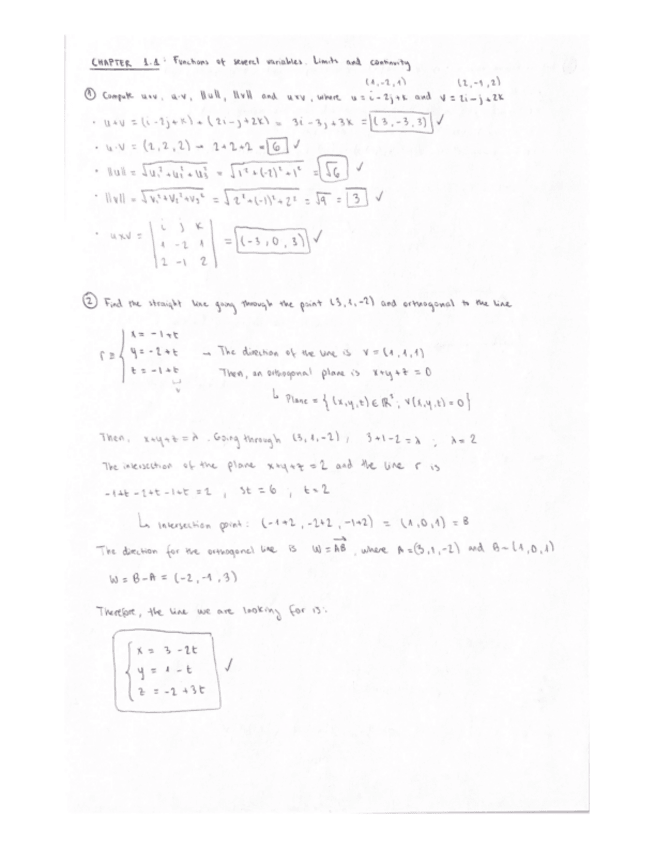 CHAPTER 1.1: Functions of several variables. Limits and continuity
(1,-2,1) (2,-1,2)
① Compute u+v, u·v, ||u||, ||v|| and u×v, where u=i-2j+k and v=2i-j+2k
· u+v = (i-2j+k) + (2i-j+2k) = 3i-3j+3k = (3,-3,3) ✓
· u·v = (2,2,2) → 2+2+2 = 6 ✓
· ||u|| = √u₁²+u₂²+u₃² = √1²+(-2)²+1² = √6 ✓
· ||v|| = √v₁²+v₂²+v₃² = √2²+(-1)²+2² = √9 = 3 ✓
i j k
· u×v = 1 -2 1 = (-3,0,3) ✓
2 -1 2
② Find the straight line going through the point (3,1,-2) and orthogonal to the line
x = -1+t
r ≡ y = -2+t → The direction of the line is v=(1,1,1)
z = -1+t Then, an orthogonal plane is x+y+z=0
v
↳ Plane = {(x,y,z)∈ℝ³; v(x,y,z)=0}
Then, x+y+z=λ. Going through (3,1,-2); 3+1-2=λ; λ=2
The intersection of the plane x+y+z=2 and the line r is
-1+t-2+t-1+t=2, 3t=6, t=2
↳ Intersection point: (-1+2, -2+2, -1+2) = (1,0,1) = B
The direction for the orthogonal line is W=AB, where A=(3,1,-2) and B=(1,0,1)
W=B-A=(-2,-1,3)
Therefore, the line we are looking for is:
x = 3-2t
y = 1-t ✓
z = -2+3t